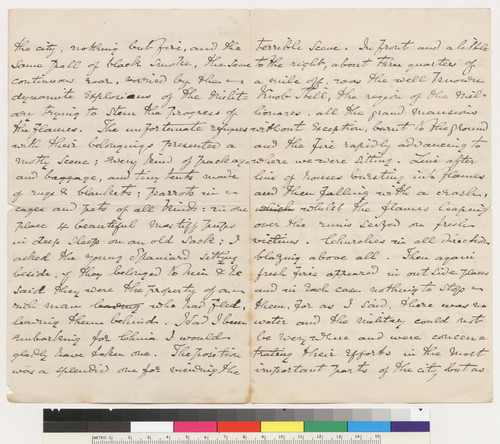 the city, nothing but fire, and the
same pall of black smoke, the same
continuous roar, varied by the
dynamite explosions of the Milita
ry trying to stem the progress of
the flames. The unfortunate refugees
with their belongings presented a
motly scene; every kind of package
and baggage, and tiny tents made
of rugs & blankets; parrots in
cages and pets of all kinds: in one
place 4 beautiful mastiff pups
in deep sleep on an old sack; I
asked the young Spaniard sitting
beside, if they belonged to him & he
said they were the property of a
rich man leaving who had fled,
leaving them behind. Had I been
embarking for China I would
gladly have taken one. The position
was a splendid one for viewing the
terrible scene. In front and a little
to the right, about three quarters of
a mile off, was the well known
Knob Hill, the region of the Mil-
lionares. all the grand mansions
without exception, burnt to the ground
and the fire rapidly advancing to
where we were sitting. Line after
line of houses bursting into flames
and then falling with a crash,
which whilst the flames leaping
over the ruins seized on fresh
victims. Churches in all directions
blazing above all. Then again
fresh fires appeared in outside places
and in each case nothing to stop
them, for as I said, there was no
water and the military could not
be everywhere and were concen
trating their efforts in the most
important parts of the city, but as
METRIC 1 2 3 4 5 6 7 8 9 10 11 12 13 14 15 16 17 18 19